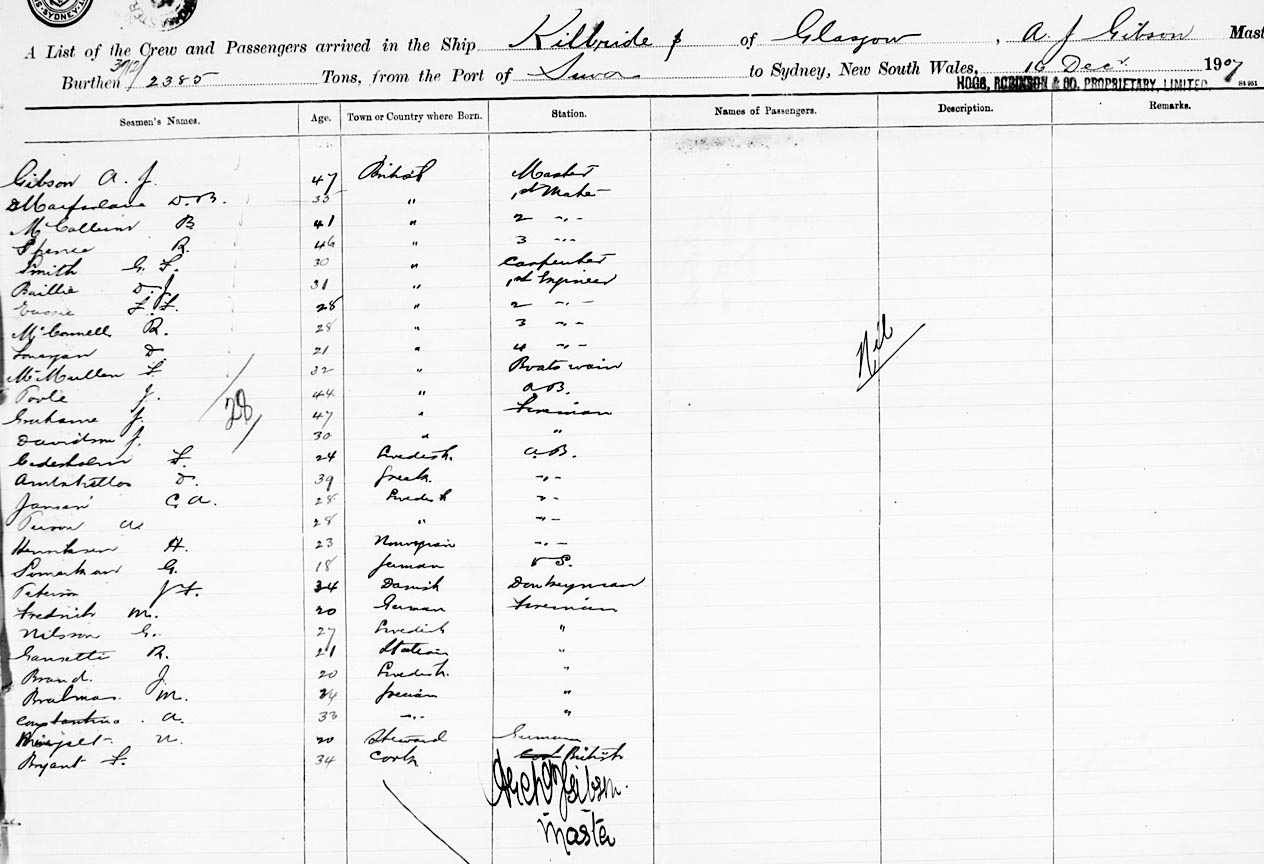 SYDNEY
A List of the Crew and Passengers arrived in the Ship Kilbride of Glasgow, A. J. Gibson Mast
Burthen 2385 Tons, from the Port of Suva to Sydney, New South Wales, 16 Decr. 1907
HOGG, ROBINSON & CO. PROPRIETARY, LIMITED.
Seamen's Names. Age. Town or Country where Born. Station. Names of Passengers. Description. Remarks.
Gibson A. J. 47 British Master
Macfarlane D. B. 35 " 1st Mate
McCallum B 41 " 2 -"-
Spence R. 46 " 3 -"-
Smith G. F. 30 " Carpenter
Baillie D. J. 31 " 1st Engineer
F. F. 28 " 2 -"-
McConnell R. 28 " 3 -"-
Lonergan D. 21 " 4 -"-
McMullen F 32 " Boatswain
Nil
Toole J. 44 " A.B.
Grahame J. 47 " Fireman
28
Davidson J. 30 " "
Cedesholm F. 24 Swedish. A.B.
D. 39 Greek. -"-
Jansen C. A. 28 Swedish -"-
Person A. 28 " -"-
Henriksen H. 23 Norwegian -"-
G. 18 German O S.
Peterson J F. 34 Danish Donkeyman
Fredrick M. 20 German Fireman
Nilsson G. 27 Swedish "
R. 21 Italian "
Brand. J. 20 Swedish. "
M. 24 Grecian "
Constantino. A. 33 -"- "
20 Steward German
Bryant F. 34 Cook Cook British
Archd Gibson.
Master